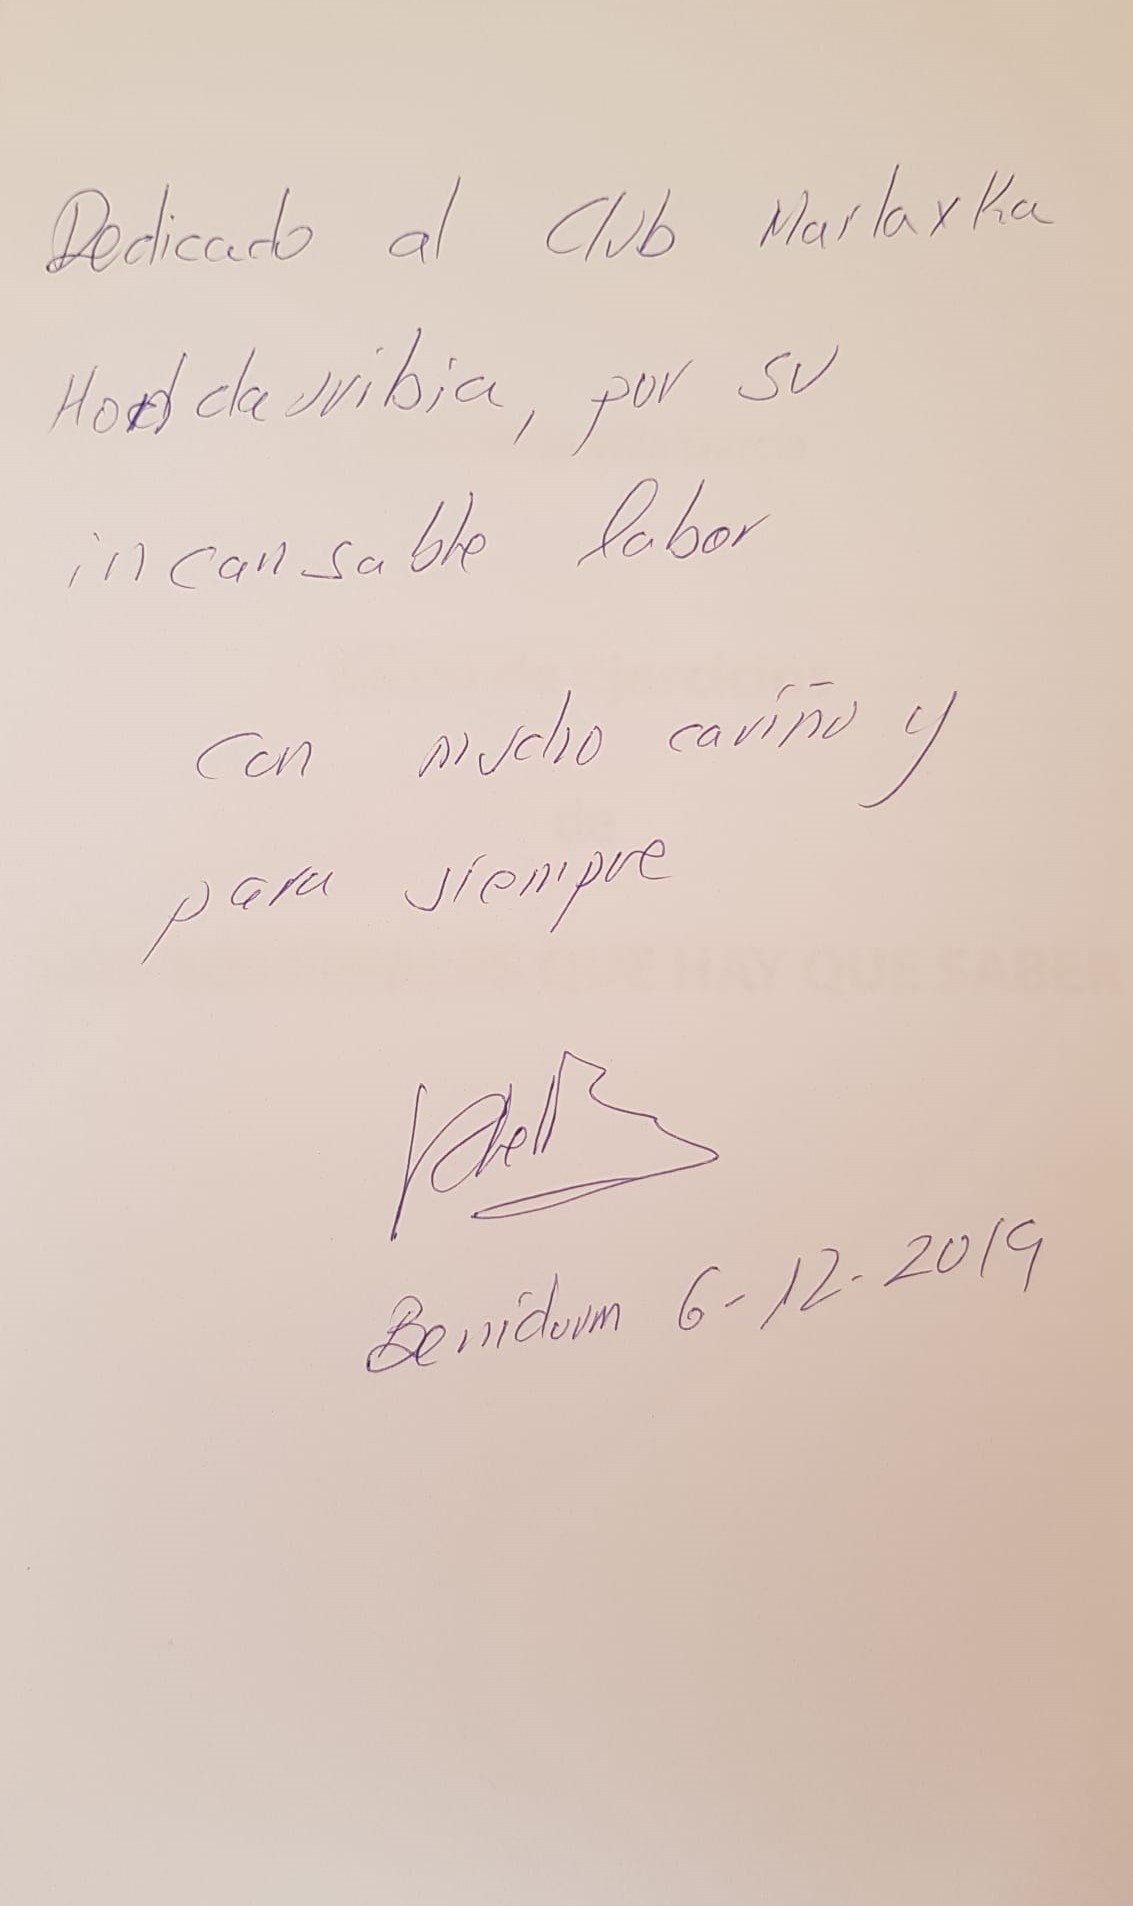 Dedicado al Club Marlaxka
Hondda uribia, por su
incansable labor
con mucho cariño y
para siempre
QUE HAY QUE SABER
Benidorm 6-12-2019